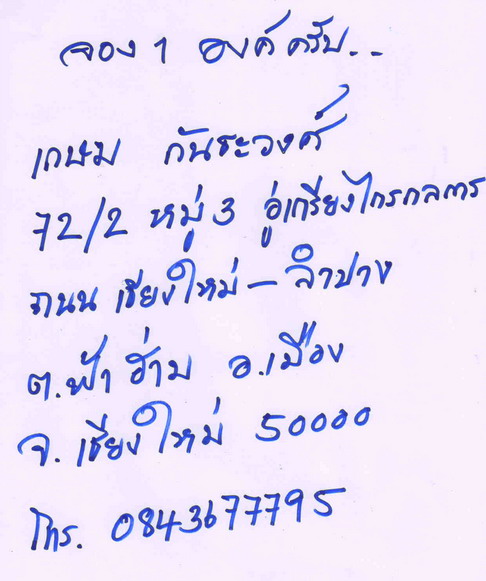 จอง 1 องค์ ครับ..
เกษม กันธะวงค์
72/2 หมู่ 3 อู่เกรียงไกรกลการ
ถนน เชียงใหม่ - ลำปาง
ต.ฟ้าฮ่าม อ.เมือง
จ.เชียงใหม่ 50000
โทร. 0843677795